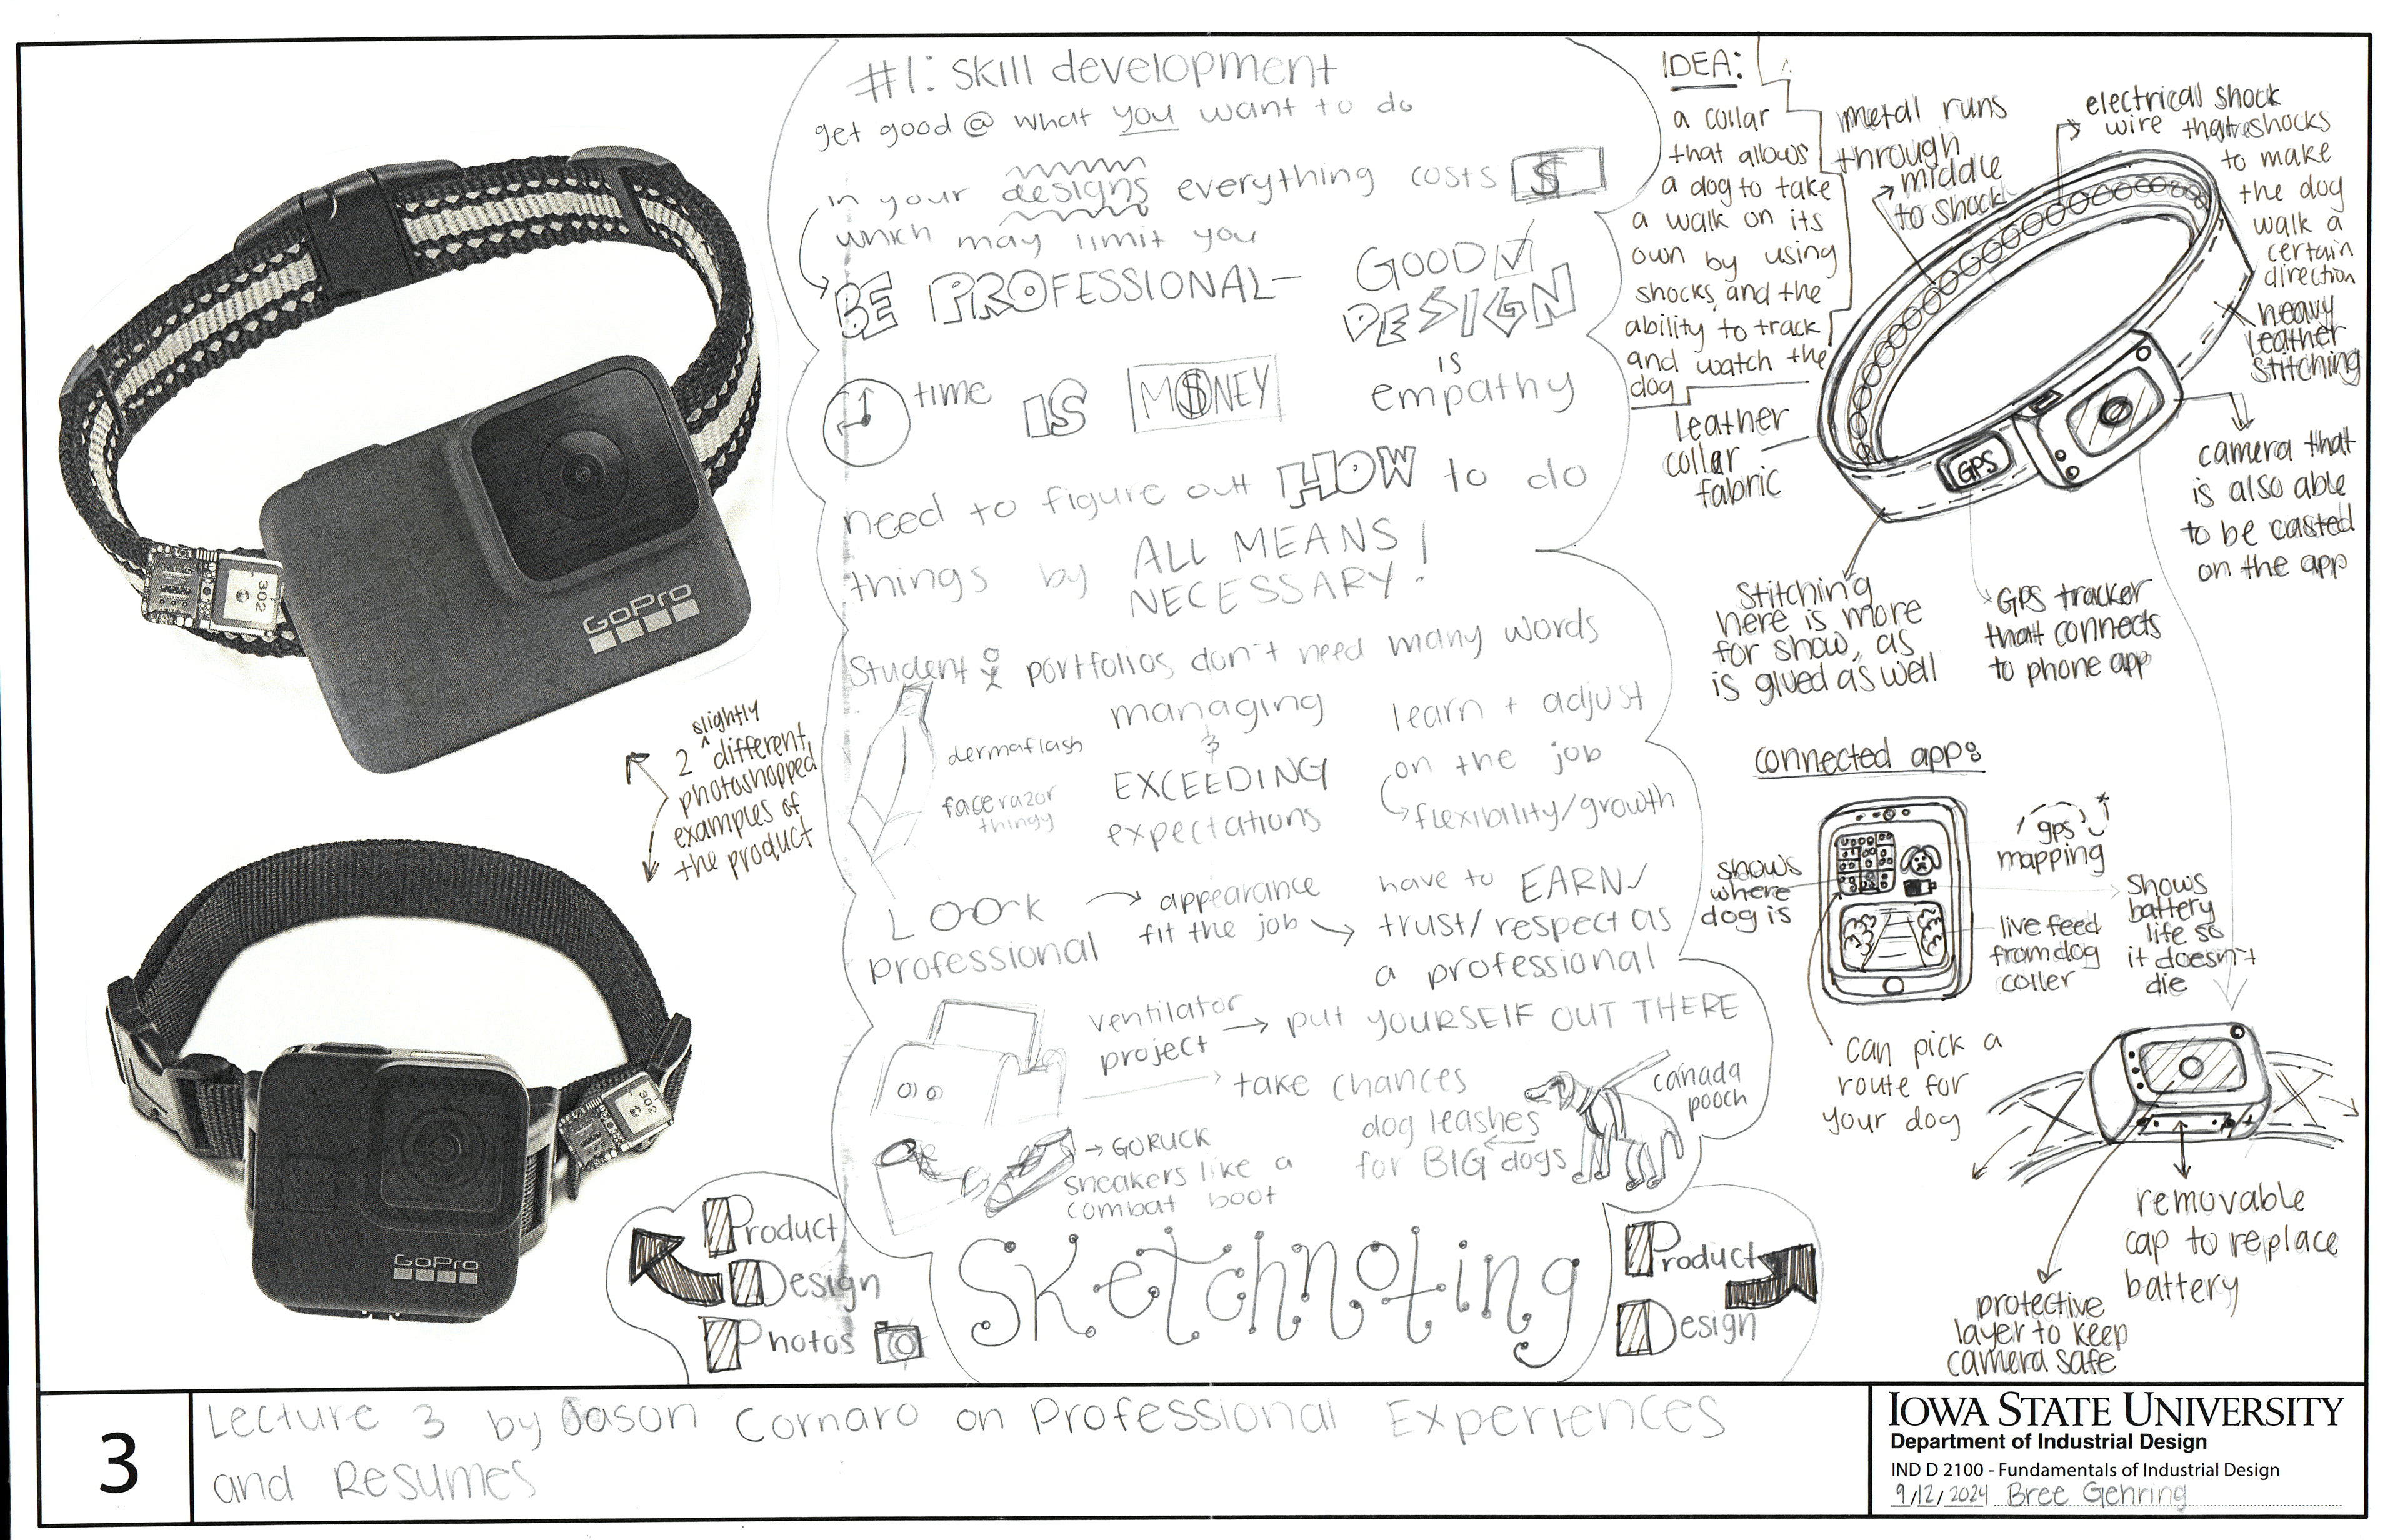 #1: Skill development
get good @ what you want to do
in your designs everything costs $
which may limit you
BE PROFESSIONAL—
GOOD
DESIGN
is
empathy
time IS M$NEY
need to figure out HOW to do
things by ALL MEANS
NECESSARY!
Student portfolios don't need many words
dermaflash
face razor
thingy
managing
&
EXCEEDING
expectations
learn + adjust
on the job
flexibility/growth
LOOK
professional
appearance
fit the job
have to EARN
trust/respect as
a professional
ventilator
project
put YOURSELF OUT THERE
take chances
GORUCK
sneakers like a
combat boot
dog leashes
for BIG dogs
canada
pooch
Sketchnoting
GoPro
302
2 slightly different
photoshopped
examples of
the product
GoPro
302
Product
Design
Photos
Product
Design
IDEA:
a collar
that allows
a dog to take
a walk on its
own by using
shocks, and the
ability to track
and watch the
dog
metal runs
through
middle
to shock
electrical shock
wire that shocks
to make
the dog
walk a
certain
direction
heavy
leather
stitching
leather
collar
fabric
GPS
camera that
is also able
to be casted
on the app
Stitching
here is more
for show, as
is glued as well
GPS tracker
that connects
to phone app
connected app:
shows
where
dog is
gps
mapping
live feed
from dog
coller
shows
battery
life so
it doesn't
die
can pick a
route for
your dog
removable
cap to replace
battery
protective
layer to keep
camera safe
3
Lecture 3 by Jason Cornaro on Professional Experiences
and Resumes
IOWA STATE UNIVERSITY
Department of Industrial Design
IND D 2100 - Fundamentals of Industrial Design
9/12/2024 Bree Gehring